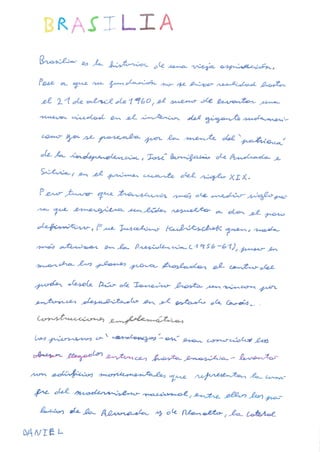 BRASILIA
Brasilia es la historia de una vieja aspiración.
Pese a que su fundación no se hizo realidad hasta
el 21 de abril de 1960, el sueño de levantar una
nueva ciudad en el interior del gigante sudameri-
cano ya se paseaba por la mente del "patriarca"
de la independencia, José Bonifacio de Andrada e
Silvia, en el primer cuarto del siglo XIX.
Pero tuvo que transcurrir más de medio siglo pa
ra que emergiera un líder resuelto a dar el paso
definitivo, Fue Juscelino Kubitschek quien, nada
más aterrizar en la Presidencia (1956-61), puso en
marcha los planes para trasladar el centro del
poder desde Río de Janeiro hasta un rincón por
entonces deshabitado en el estado de Goiás.
Construcciones emblemáticas
Los pioneros o "candangos" -así eran conocidos los
obreros llegados entonces hasta Brasilia- levanta
ron edificios monumentales que representan la cum
bre del modernismo nacional, entre ellos los pa
lacios de la Alvorada y de Planalto, la Catedral
DANIEL